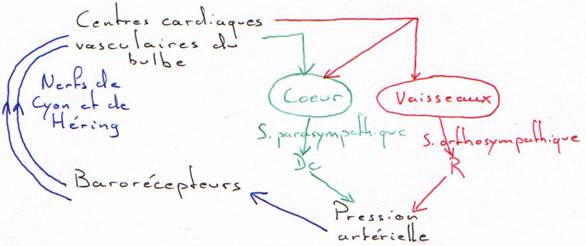 Centres cardiaques
vasculaires du
bulbe
Nerfs de
Cyon et de
Héring
Coeur
Vaisseaux
S. parasympathique
S. orthosympathique
Dc
R
Barorécepteurs
Pression
artérielle